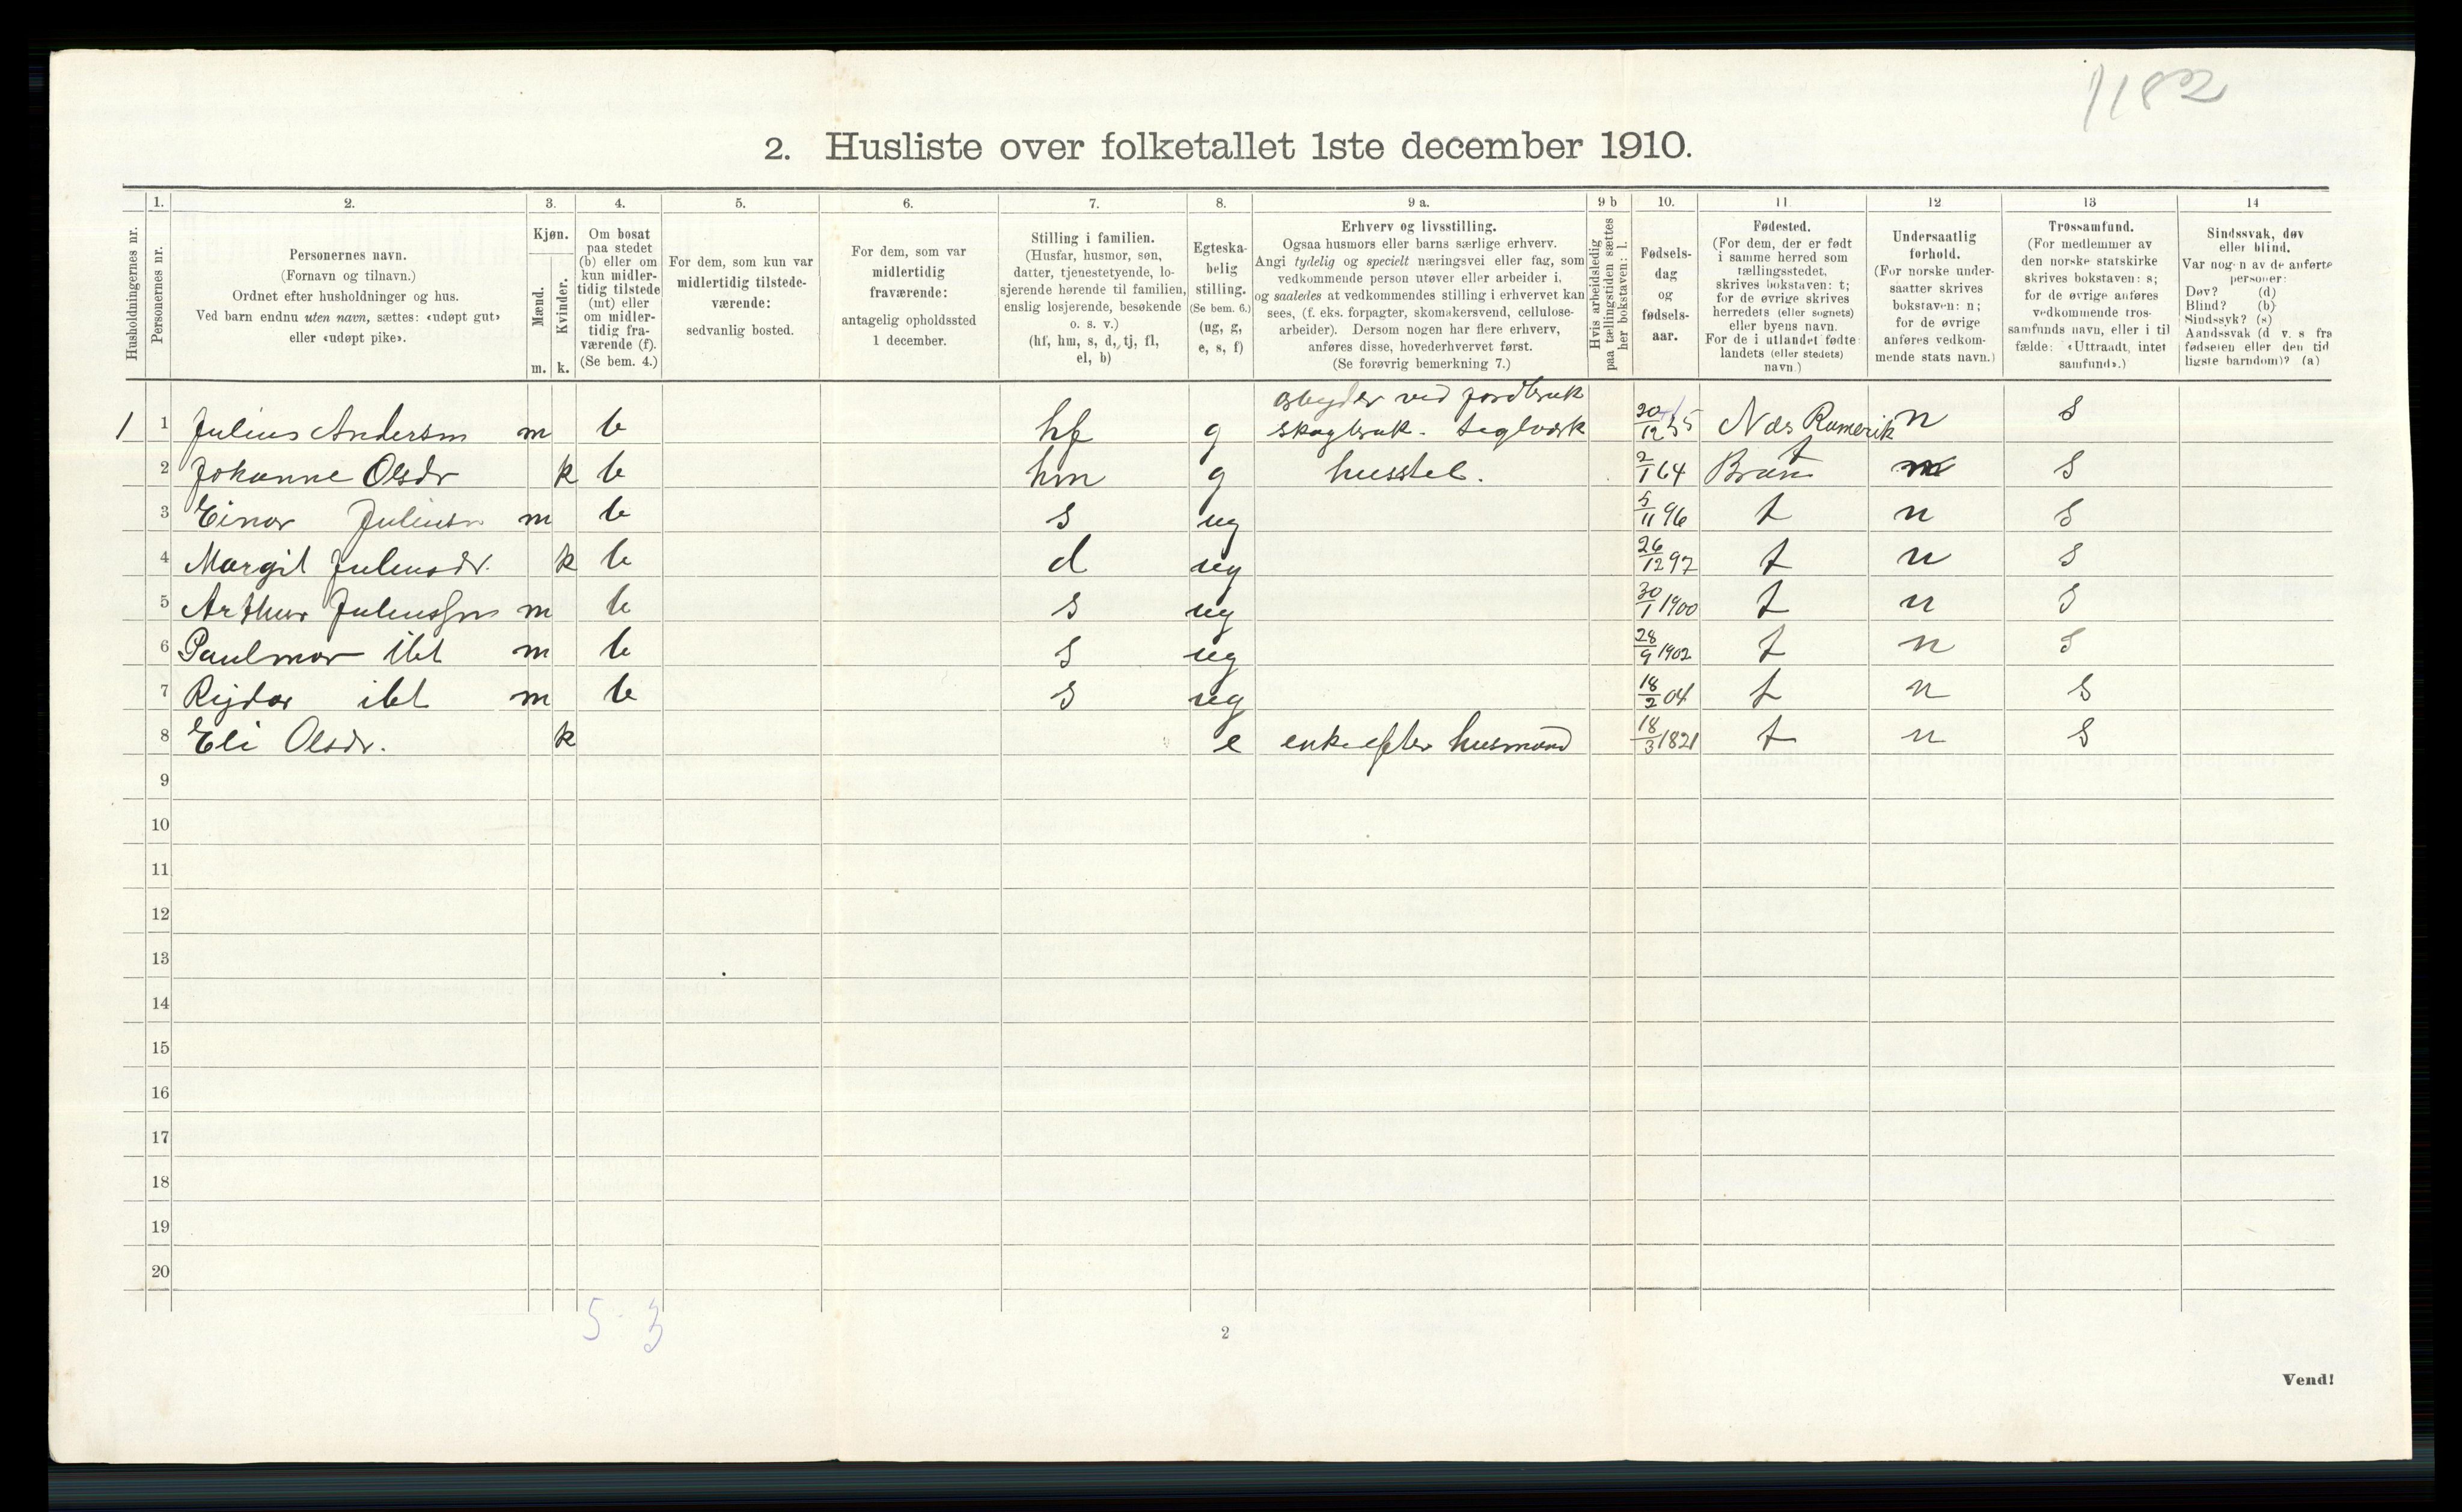 1182
2. Husliste over folketallet 1ste december 1910.
Husholdningernes nr.
1.
Personernes nr.
2.
Personernes navn.
(Fornavn og tilnavn.)
Ordnet efter husholdninger og hus.
Ved barn endnu uten navn, sættes: «udøpt gut»
eller «udøpt pike».
3.
Kjøn.
Mænd.
Kvinder.
m. k.
4.
Om bosat
paa stedet
(b) eller om
kun midler-
tidig tilstede
(mt) eller
om midler-
tidig fra-
værende (f).
(Se bem. 4.)
5.
For dem, som kun var
midlertidig tilstede-
værende:
sedvanlig bosted.
6.
For dem, som var
midlertidig
fraværende:
antagelig opholdssted
1 december.
7.
Stilling i familien.
(Husfar, husmor, søn,
datter, tjenestetyende, lo-
sjerende hørende til familien,
enslig losjerende, besøkende
o. s. v.)
(hf, hm, s, d, tj, fl,
el, b)
8.
Egteska-
belig
stilling.
(Se bem. 6.)
(ug, g,
e, s, f)
9 a.
Erhverv og livsstilling.
Ogsaa husmors eller barns særlige erhverv.
Angi tydelig og specielt næringsvei eller fag, som
vedkommende person utøver eller arbeider i,
og saaledes at vedkommendes stilling i erhvervet kan
sees, (f. eks. forpagter, skomakersvend, cellulose-
arbeider). Dersom nogen har flere erhverv,
anføres disse, hovederhvervet først.
(Se forøvrig bemerkning 7.)
9 b
Hvis arbeidsledig
paa tællingstiden sættes
her bokstaven: l.
10.
Fødsels-
dag
og
fødsels-
aar.
11
Fødested.
(For dem, der er født
i samme herred som
tællingsstedet,
skrives bokstaven: t;
for de øvrige skrives
herredets (eller sognets)
eller byens navn.
For de i utlandet fødte:
landets (eller stedets)
navn.)
12
Undersaatlig
forhold.
(For norske under-
saatter skrives
bokstaven: n;
for de øvrige
anføres vedkom-
mende stats navn.)
13
Trossamfund.
(For medlemmer av
den norske statskirke
skrives bokstaven: s;
for de øvrige anføres
vedkommende tros-
samfunds navn, eller i til
fælde: «Uttraadt, intet
samfund».)
14
Sindssvak, døv
eller blind.
Var nogen av de anførte
personer:
Døv? (d)
Blind? (b)
Sindssyk? (s)
Aandssvak (d v. s fra
fødselen eller den tid
ligste barndom)? (a)
arbeyder ved jordbruk
1 1 Julius Andersen m b hf g skogbruk. teglværk 30/12 55 Næs Romerik n s
2 Johanne Olsdr k b hm g husstel. 2/1 64 t s
3 Einar Juliusn m b s ug 5/11 96 t n s
4 Margit Juliusdr. k b d ug 26/12 97 t n s
5 Arthur Juliussen m b s ug 30/1 1900 t n s
6 Paulmar ibt m b s ug 28/9 1902 t n s
7 Rejdar ibt m b s ug 18/2 04 t n s
8 Eli Olsdr. k e enke efter husmand 18/3 1821 t n s
9
10
11
12
13
14
15
16
17
18
19
20
5 - 3
2
Vend!